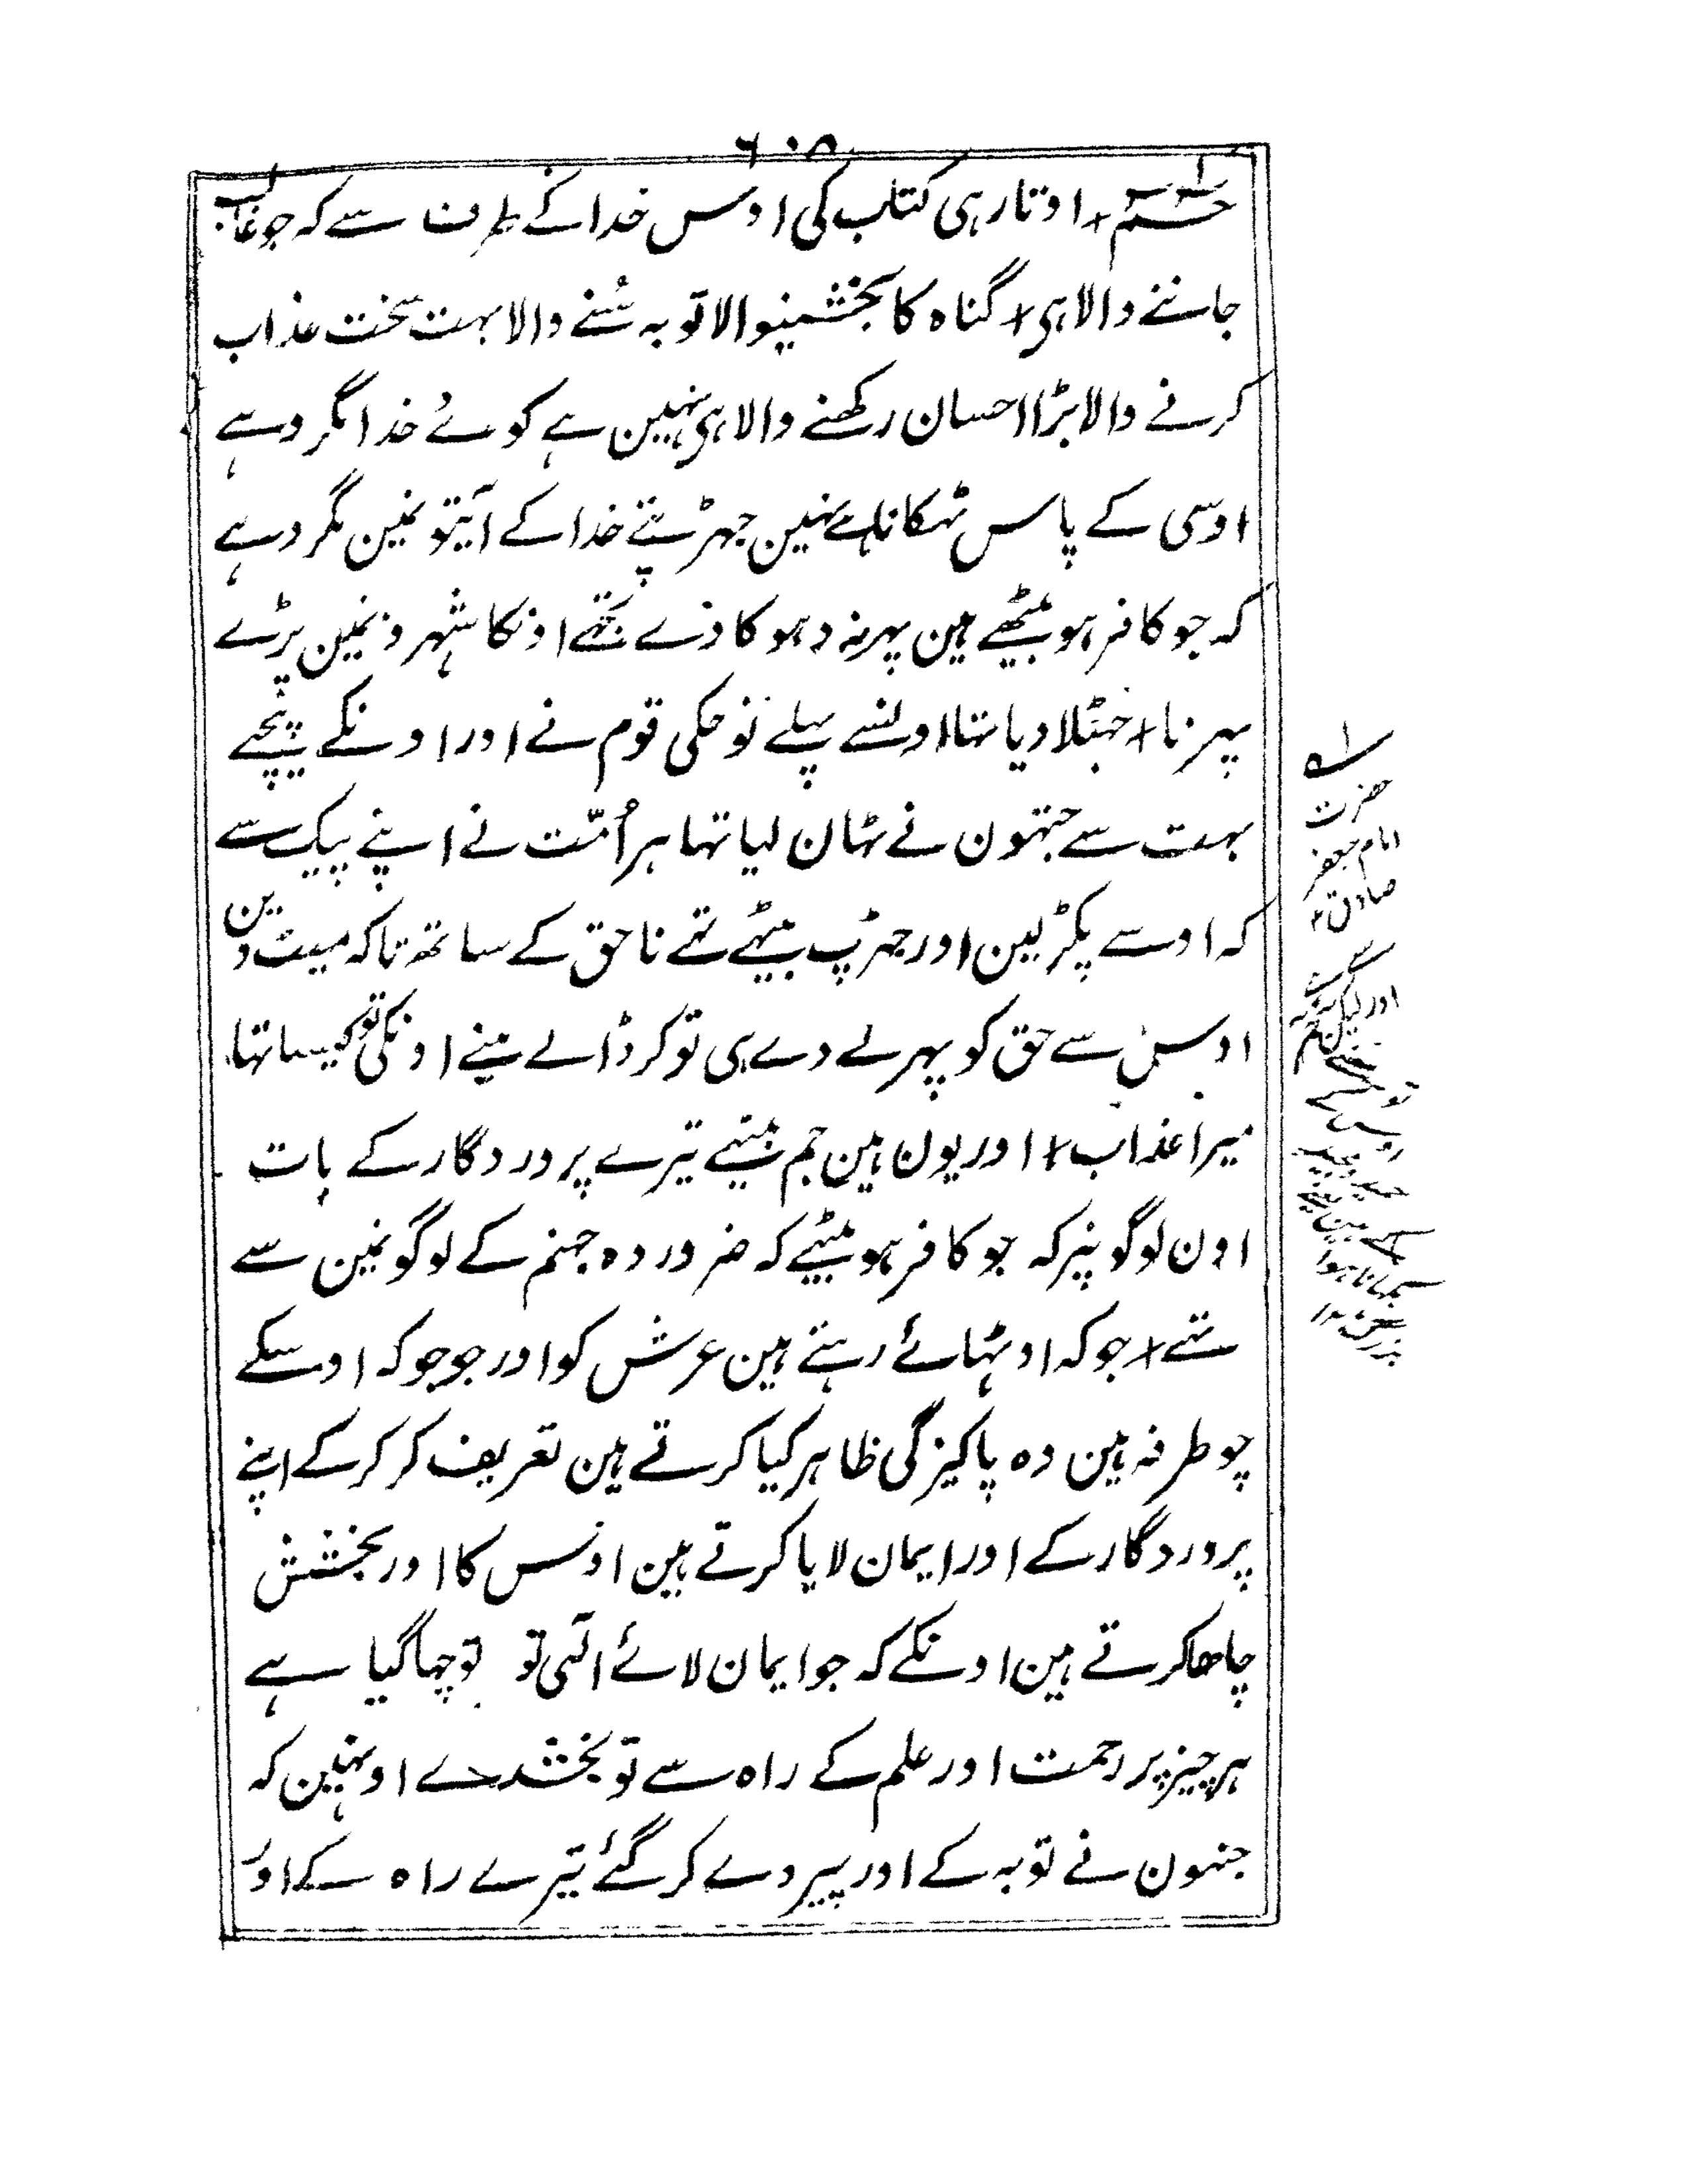 ۶۰۸
حٰمٓ + اوتار ہی کتاب کی اوس خدا کے طرف سے کہ جو غالب
جاننے والا ہی + گناہ کا بخشنیوالا توبہ سُننے والا بہت سخت عذاب
کرنے والا بڑا احسان رکھنے والا ہی نہین ہے کوئے خدا مگر وہے
اوسی کے پاس ٹہکانا ہے نہین جہڑپتے خدا کے آیتونمین مگر وہے
کہ جو کافر ہو بیٹھے ہین پہر نہ دہوکا دے تجھے اونکا شہرونمین پڑے
پہرنا + جہٹلا دیا تہا اونسے پہلے نوحکی قوم نے اور اونکے پیچہے
بہت سے جتہون نے ٹہان لیا تہا ہر اُمّت نے اپنے پیک سے
کہ اوسے پکڑ لین اور جہڑپ بیٹہے تہے ناحق کے ساتھ تاکہ میٹ دین
اوس سے حق کو پہر لے دے ہی تو کر ڈالے مینے اونکی تو کیسا تہا
میرا عذاب + اور یون ہین جم بیٹہے تیرے پروردگار کے بات
اون لوگونپر کہ جو کافر ہو بیٹہے کہ ضرور وہ جہنم کے لوگونمین سے
تہے + جو کہ اوٹہائے رہتے ہین عرش کو اور جو جو کہ اوسکے
چوطرفہ ہین وہ پاکیزگی ظاہر کیا کرتے ہین تعریف کر کر کے اپنے
پروردگار کے اور ایمان لایا کرتے ہین اوس کا اور بخشش
چاھا کرتے ہین اونکے کہ جو ایمان لائے الٰہی تو تو چہا گیا ہے
ہر چیز پر رحمت اور علم کے راہ سے تو بخشدے اونہین کہ
جنہون نے توبہ کے اور پیروے کر گئے تیرے راہ کے اور
حضرت
امام جعفر
صادق ۴